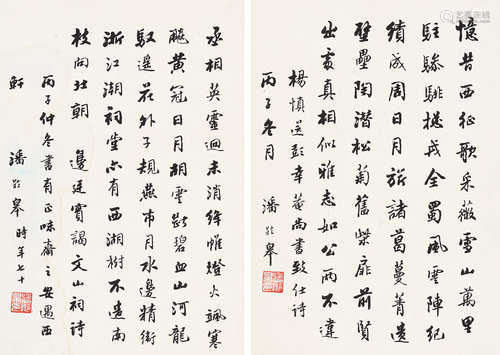 憶昔西征歌采薇雪山萬里
駐驂騑捴戎全蜀風雲陣紀
績成周日月旂諸葛蔓菁遺
壁壘陶潛松菊舊柴扉前賢
出處真相似雅志如公兩不違
楊慎送彭幸菴尚書致仕詩
丙子冬月 潘齡皋
丞相英靈迥未消絳帷燈火颯寒
飇黃冠日月胡雲斷碧血山河龍
馭遙花外子規燕市月水邊精衛
浙江潮祠堂亦有西湖樹不遣南
枝向北朝 邊廷實謁文山祠詩
丙子仲冬書有正味齋之安遇西
軒 潘齡皋時年七十